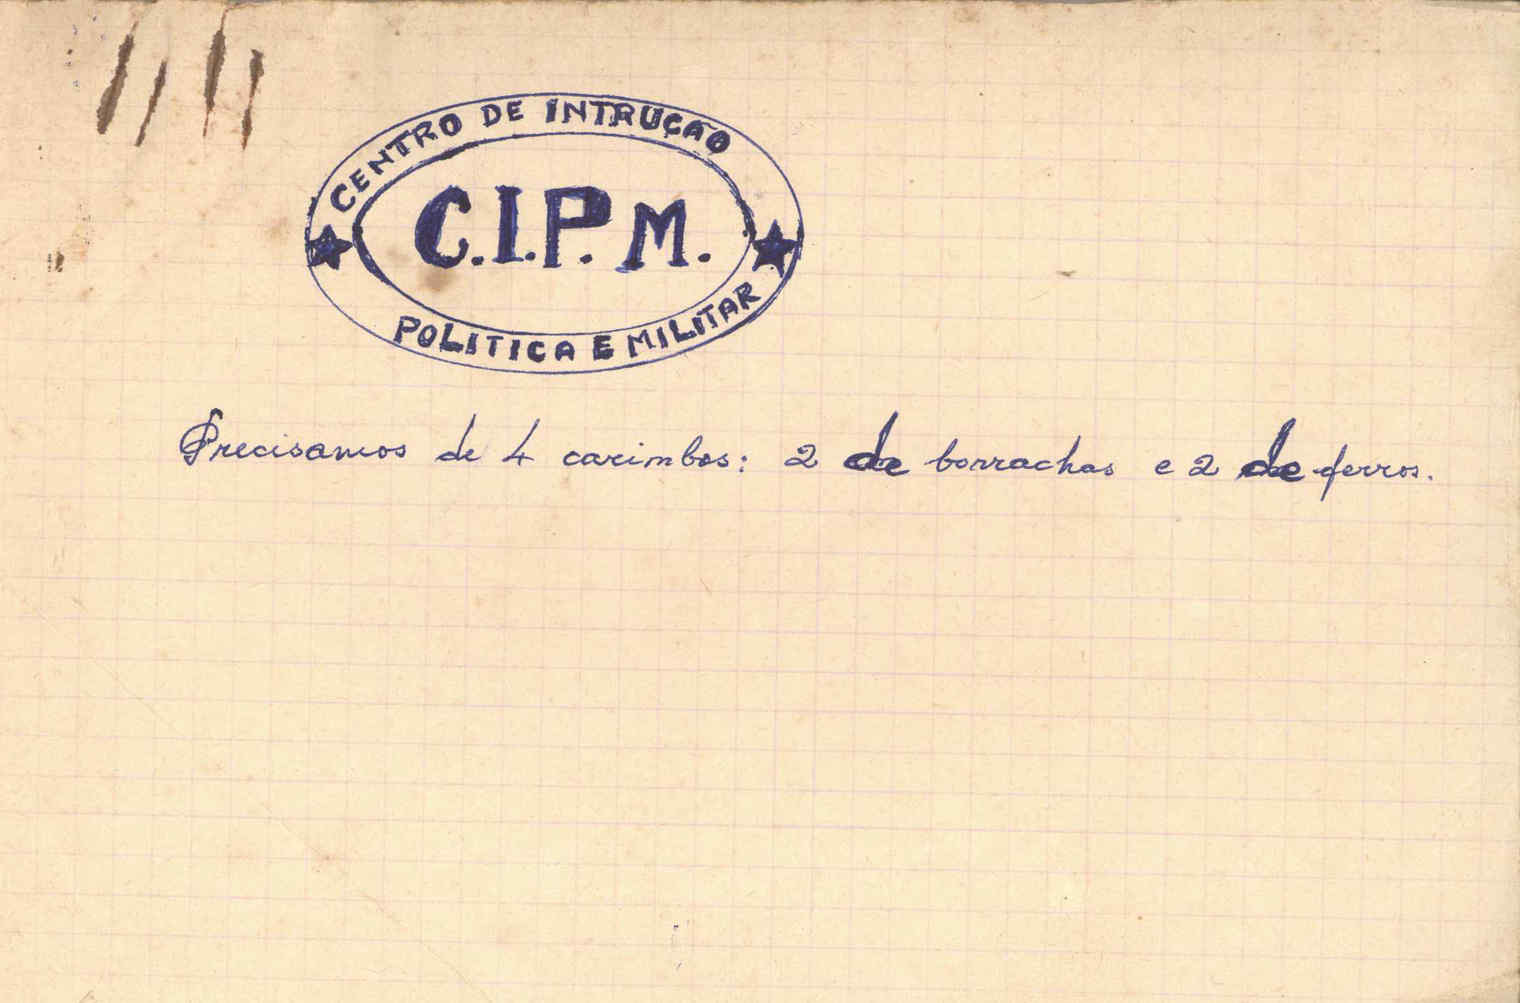 CENTRO DE INTRUÇÃO
C.I.P.M.
POLITICA E MILITAR
Precisamos de 4 carimbos: 2 de borrachas e 2 de ferros.